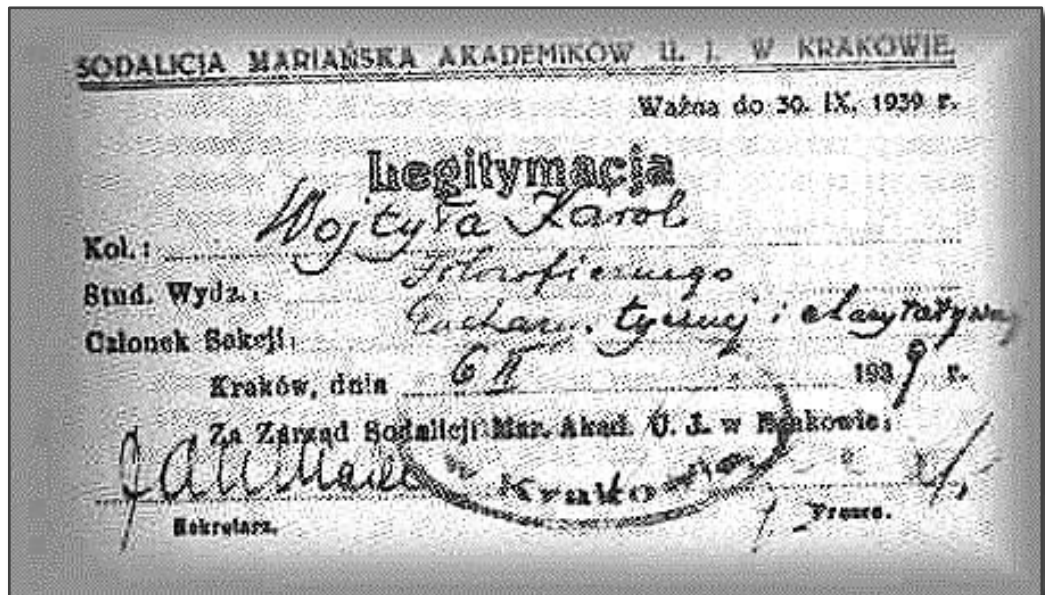 SODALICJA MARIAŃSKA AKADEMIKÓW U. J. W KRAKOWIE.
Ważna do 30. IX. 1939 r.
Legitymacja
Kol.: Wojtyła Karol
Stud. Wydz.: Filozoficznego
Członek Sekcji: Eucharystycznej i charytatywnej
Kraków, dnia 6 II 1939 r.
Za Zarząd Sodalicji Mar. Akad. U. J. w Krakowie:
w Krakowie
Sekretarz. Prezes.